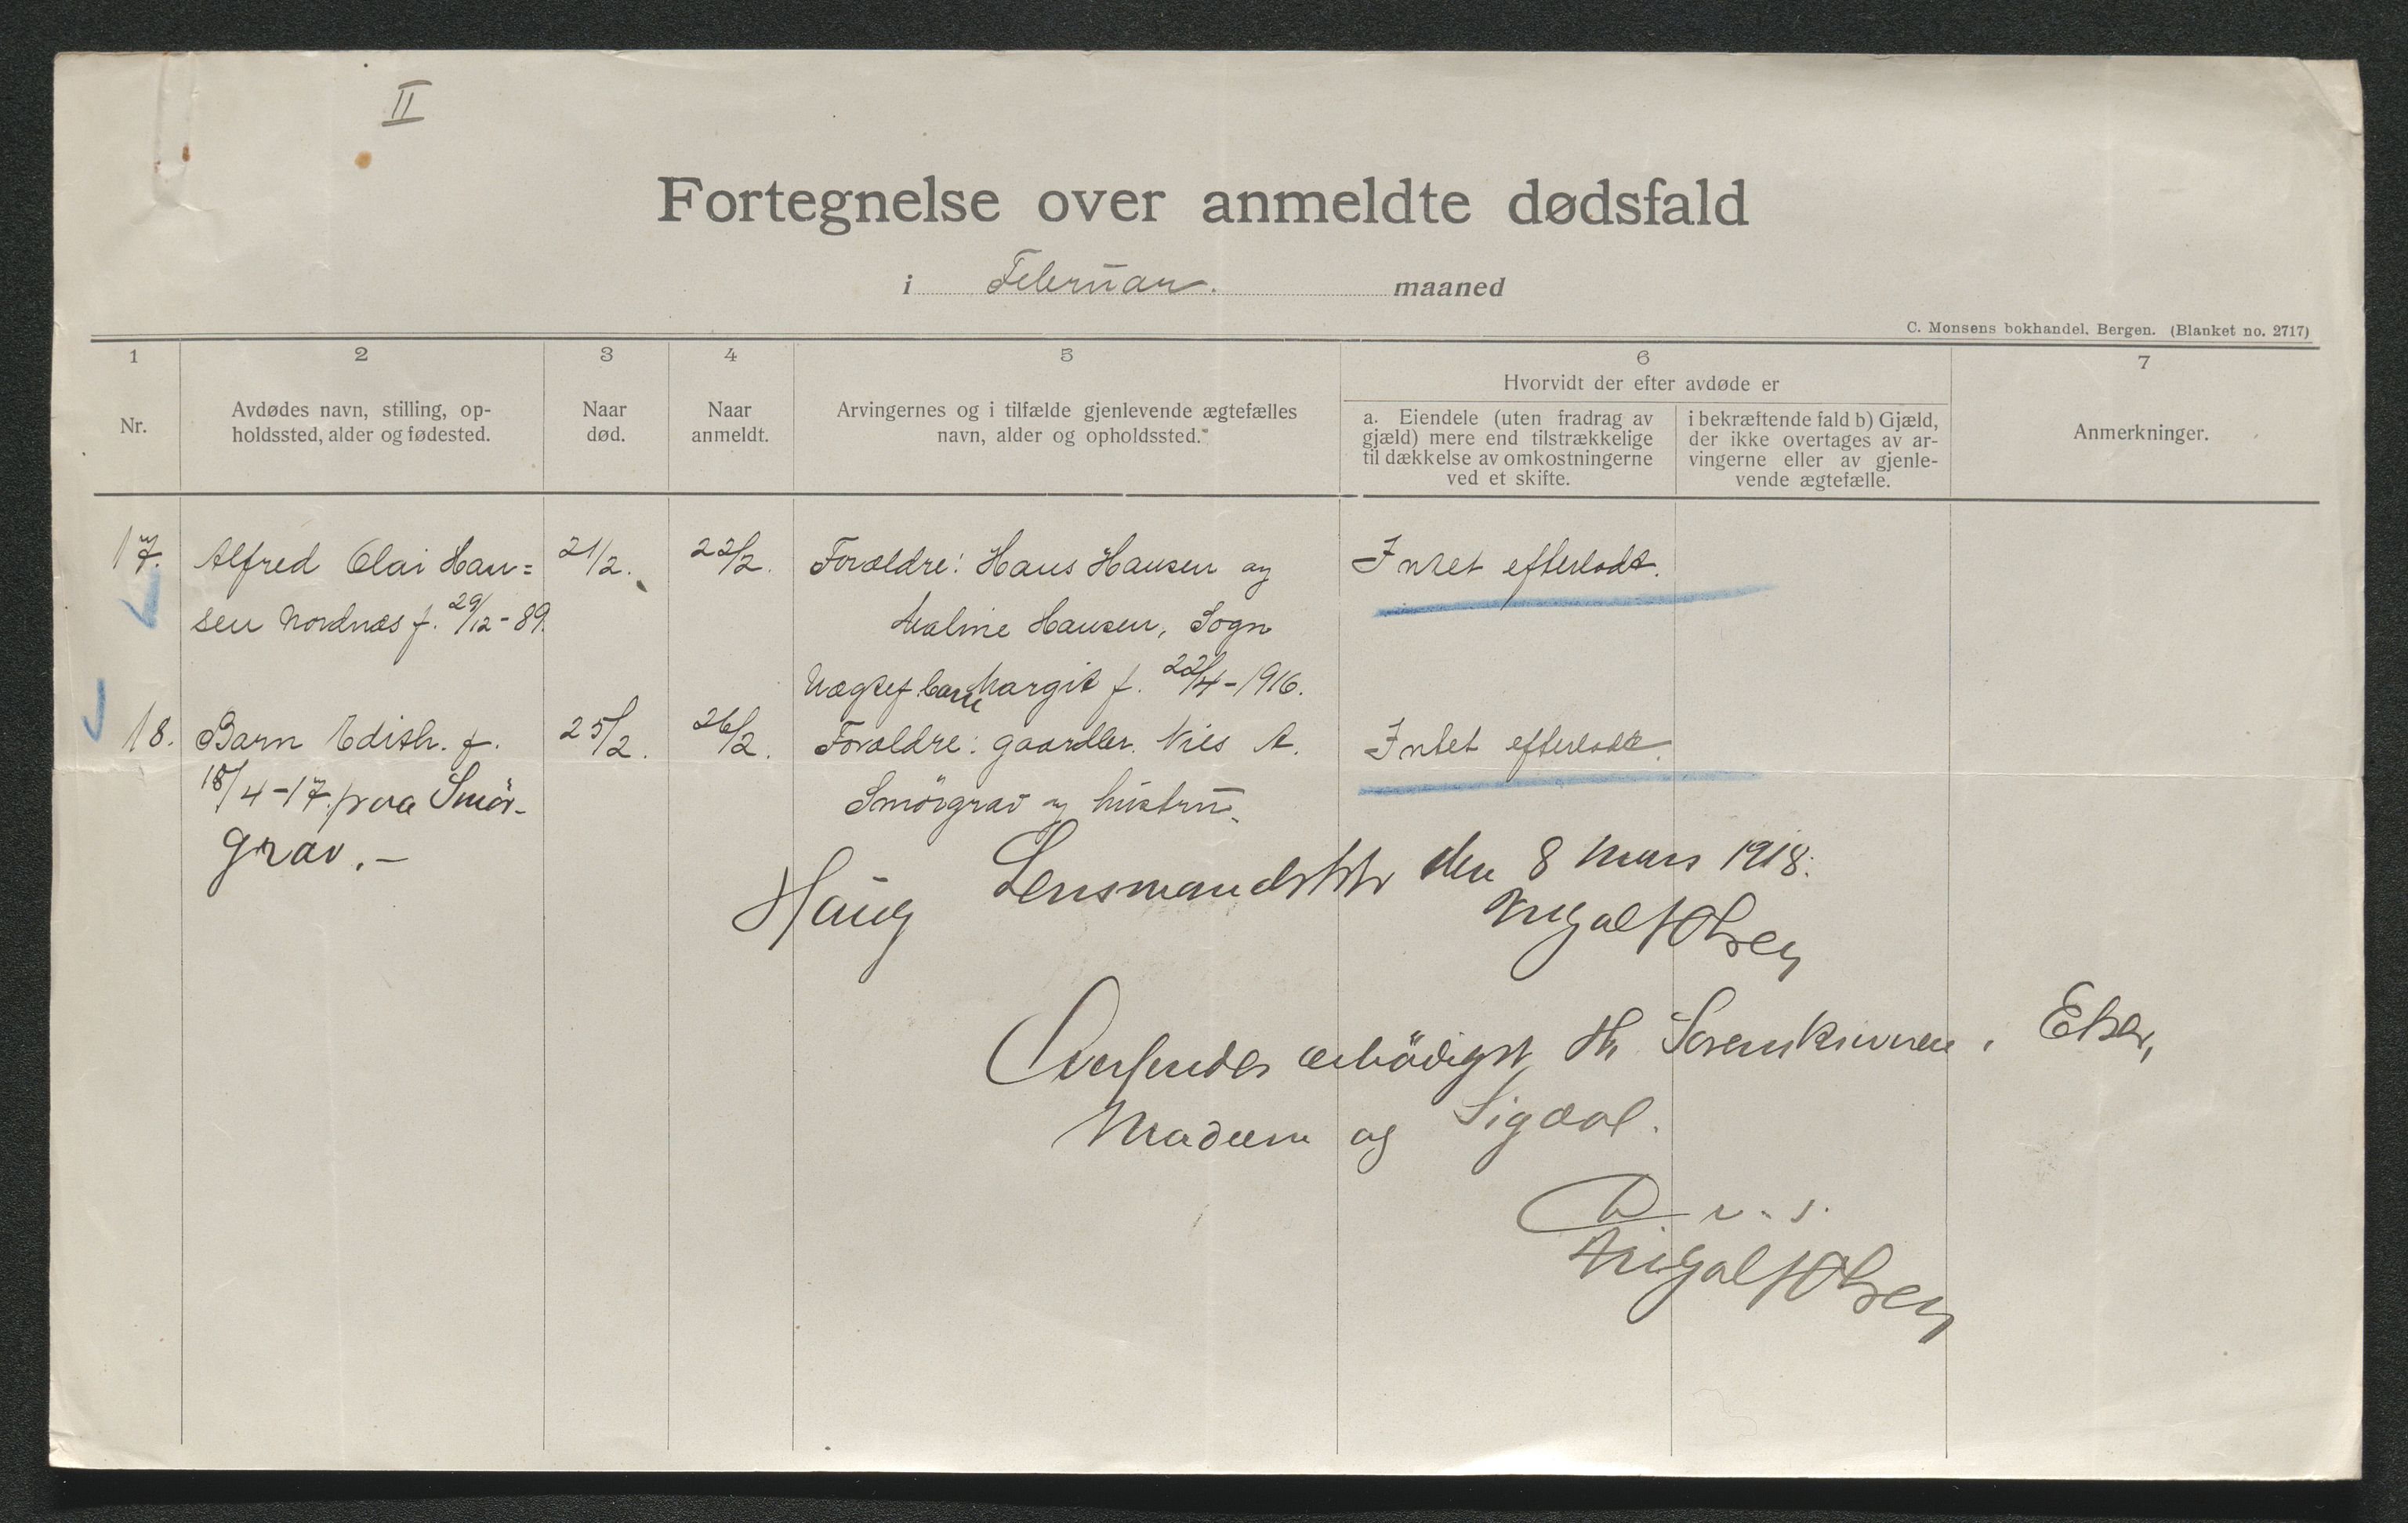 II
Fortegnelse over anmeldte dødsfald
i Februar. maaned
C. Monsens bokhandel. Bergen. (Blanket no. 2717)
1 2 3 4 5 6 7
Nr.
Avdødes navn, stilling, op-
holdssted, alder og fødested.
Naar
død.
Naar
anmeldt.
Arvingernes og i tilfælde gjenlevende ægtefælles
navn, alder og opholdssted.
Hvorvidt der efter avdøde er
a. Eiendele (uten fradrag av
gjæld) mere end tilstrækkelige
til dækkelse av omkostningerne
ved et skifte.
i bekræftende fald b) Gjæld,
der ikke overtages av ar-
vingerne eller av gjenle-
vende ægtefælle.
Anmerkninger.
17. Alfred Olai Han= 21/2. 22/2. Forældre: Hans Hansen og Intet efterladt.
sen Nordnæs f. 29/12-89. Hansen, Sogn
Uægtef. barn Margit f. 22/4-1916.
18. Barn Edith. f. 25/2. 26/2. Forældre: gaardbr. Nils A. Intet efterladt.
18/4-17. paa Smör- Smörgrav og hustru.
grav.-
Haug Lensmandsktr den 8 Mars 1918.
Olsen
Oversendes ærbödigst th Sorenskriveren i Eker,
Modum og Sigdal.
D. u. s.
Olsen